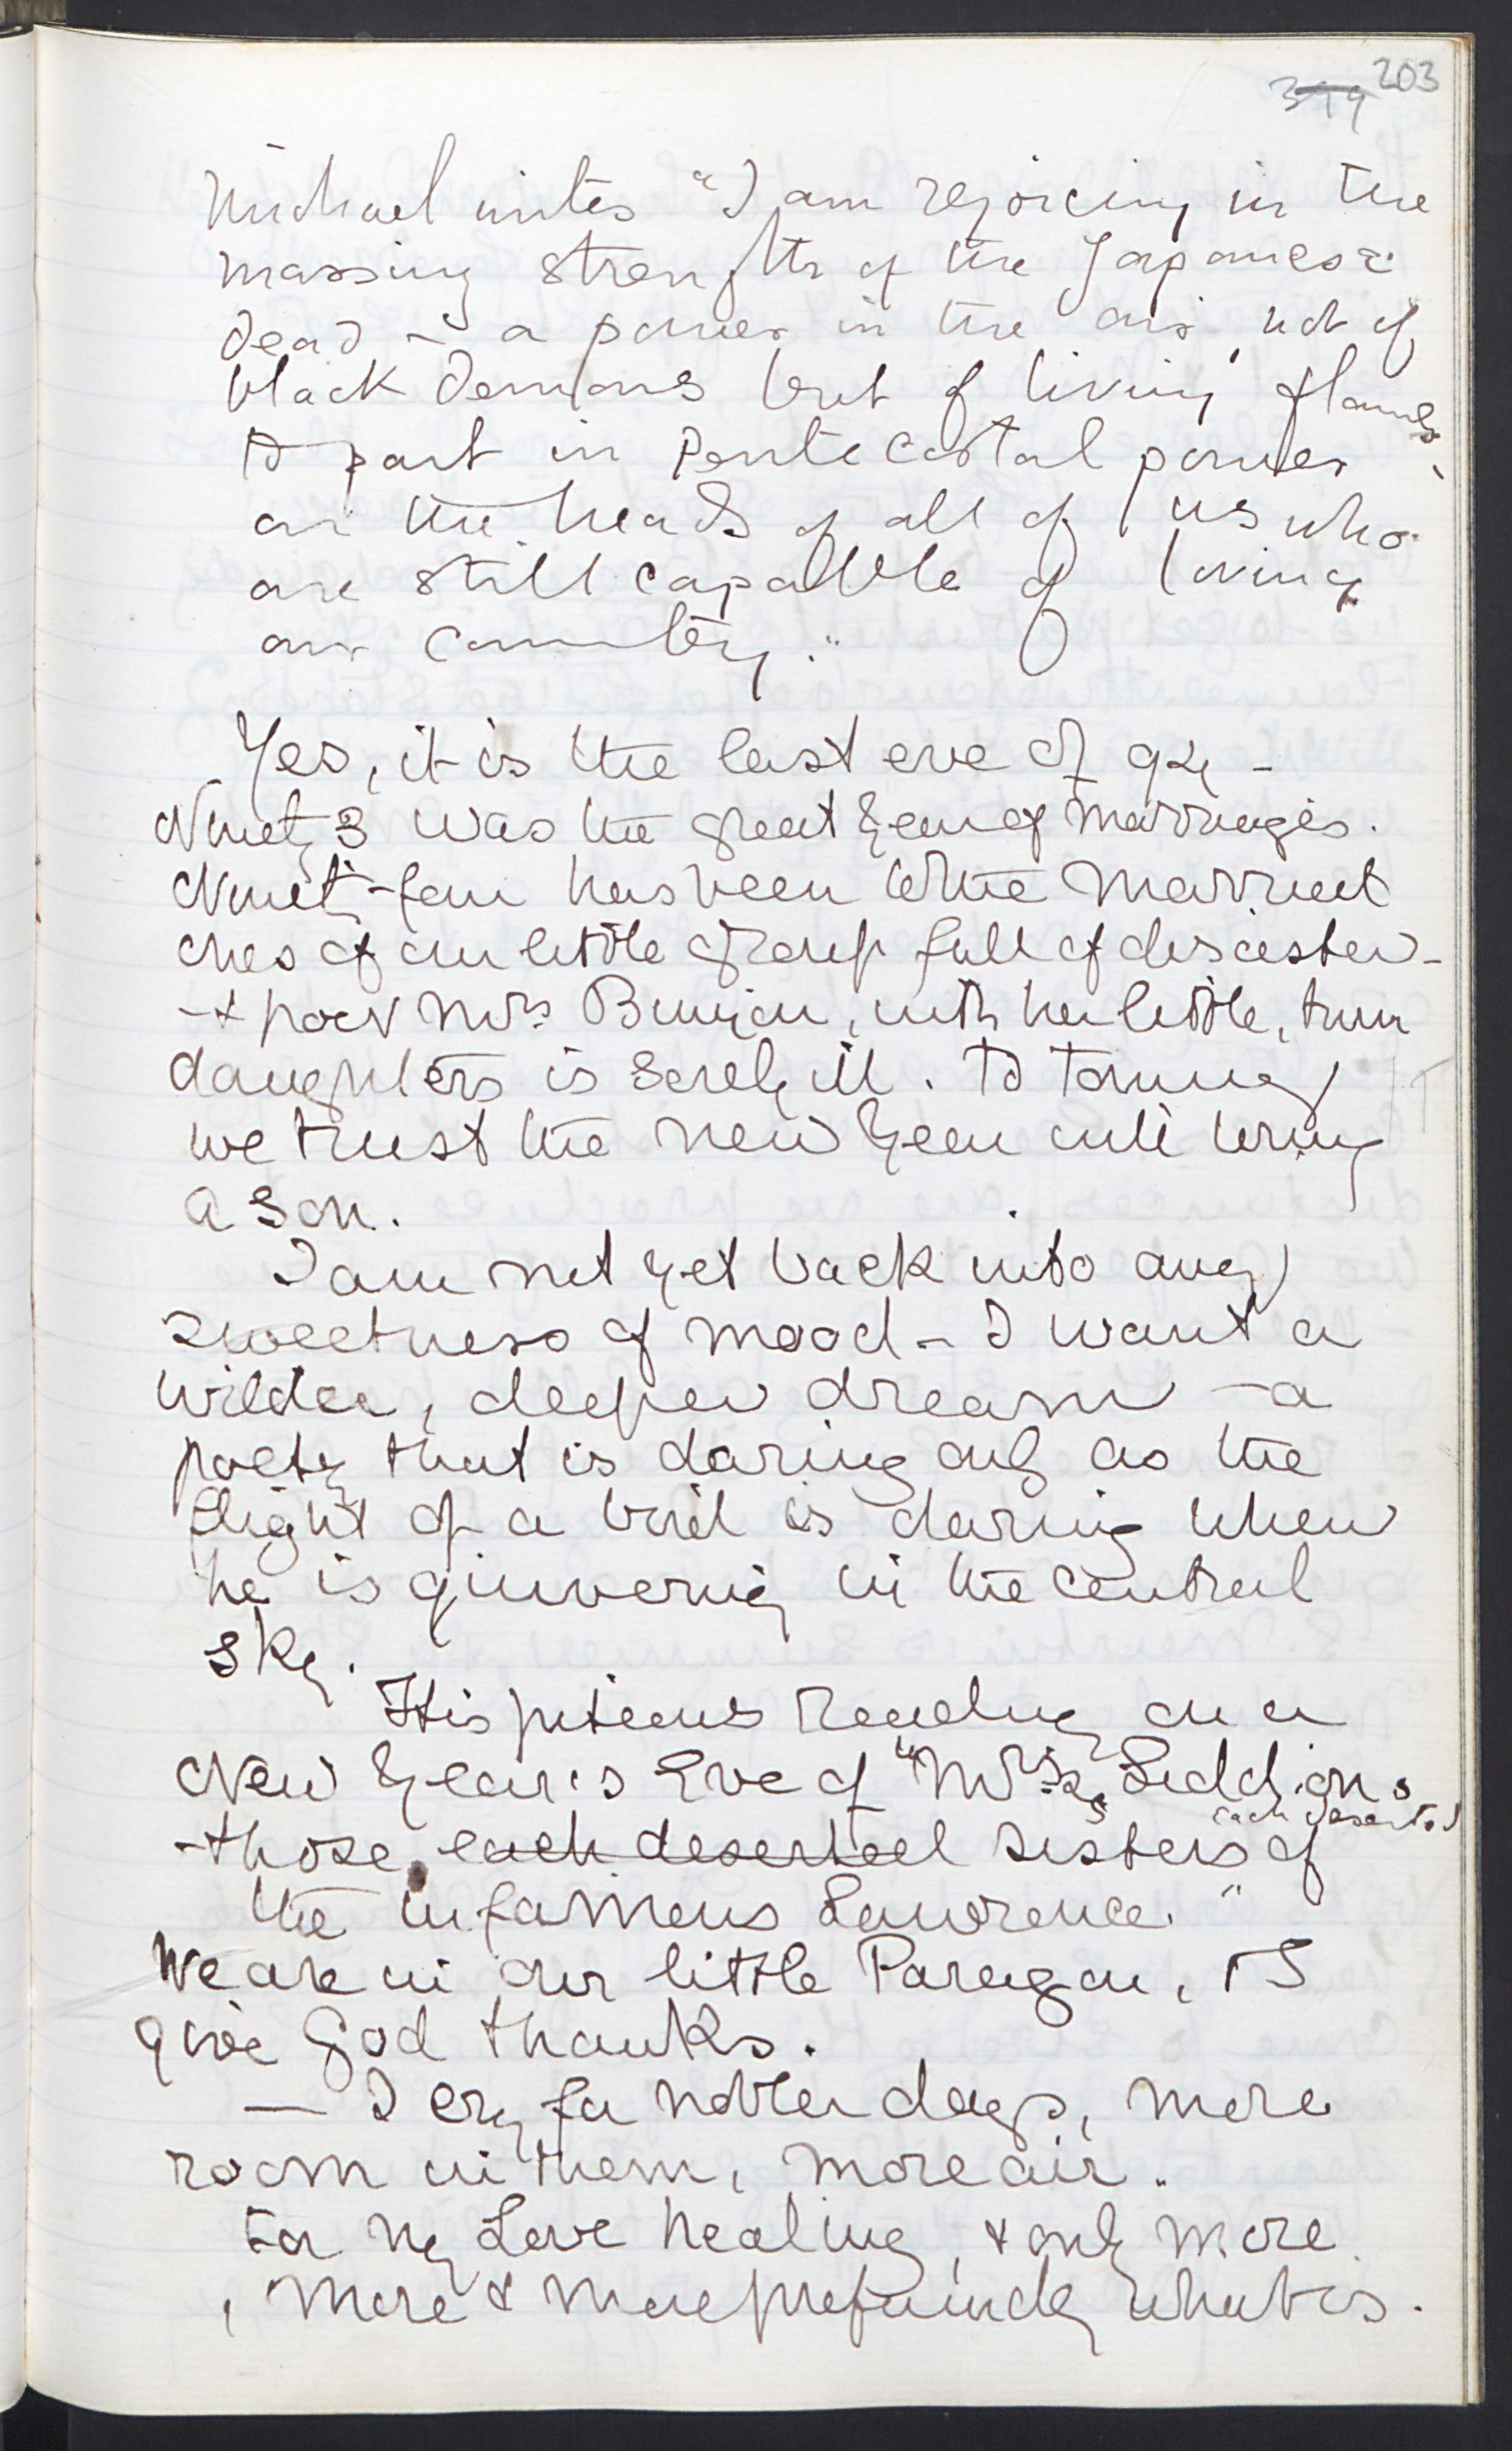 203
399
Michael writes "I am rejoicing in the
massing strength of the Japanese
dead – a power in the air, not of
black demons but of living flames,
to part in Pentecostal power
on the heads of all of us who
are still capable of loving
our country."
Yes, it is the last eve of 94 –
Ninety 3 was the great year of marriages.
Ninety-four has been to the married
ones of our little group full of disaster –
– & poor Mrs Bunyan, with her little, twin
daughters is sorely ill. To Tommy
we trust the new year will bring
a son.
I am not yet back into any
sweetness of mood – I want a
wilder, deeper dream – a
poetry that is daring only as the
flight of a bird is daring when
he is quivering in the central
sky.
It is piteous reading on a
New Year's Eve of "Mrs Siddons
each deserted
– those each deserted sisters of
the infamous Lawrence."
We are in our little Paragon, & I
give God thanks.
— I cry for nobler days, more
room in them, more air.
For my Love healing, & only more
, more & more profoundly what is.